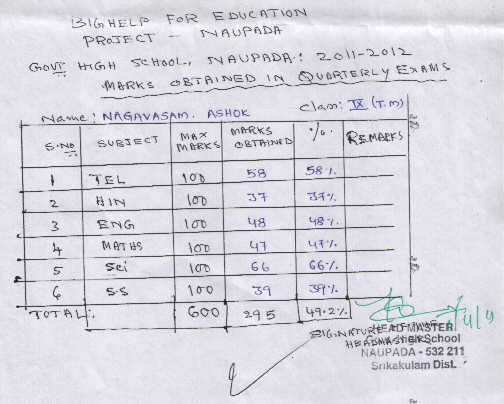 BIGHELP FOR EDUCATION
PROJECT - NAUPADA
GOVT HIGH SCHOOL, NAUPADA: 2011-2012
MARKS OBTAINED IN QUARTERLY EXAMS
Name: NAGAVASAM. ASHOK Class: IX (T.M)
S.No SUBJECT MAX MARKS MARKS OBTAINED %. REMARKS
1 TEL 100 58 58%
2 HIN 100 37 37%
3 ENG 100 48 48%
4 MATHS 100 47 47%
5 Sci 100 66 66%
6 S.S 100 39 39%
TOTAL: 600 295 49.2%
SIGNATURE OF
HEADMASTER
HEADMASTER
High School
NAUPADA - 532 211
Srikakulam Dist.